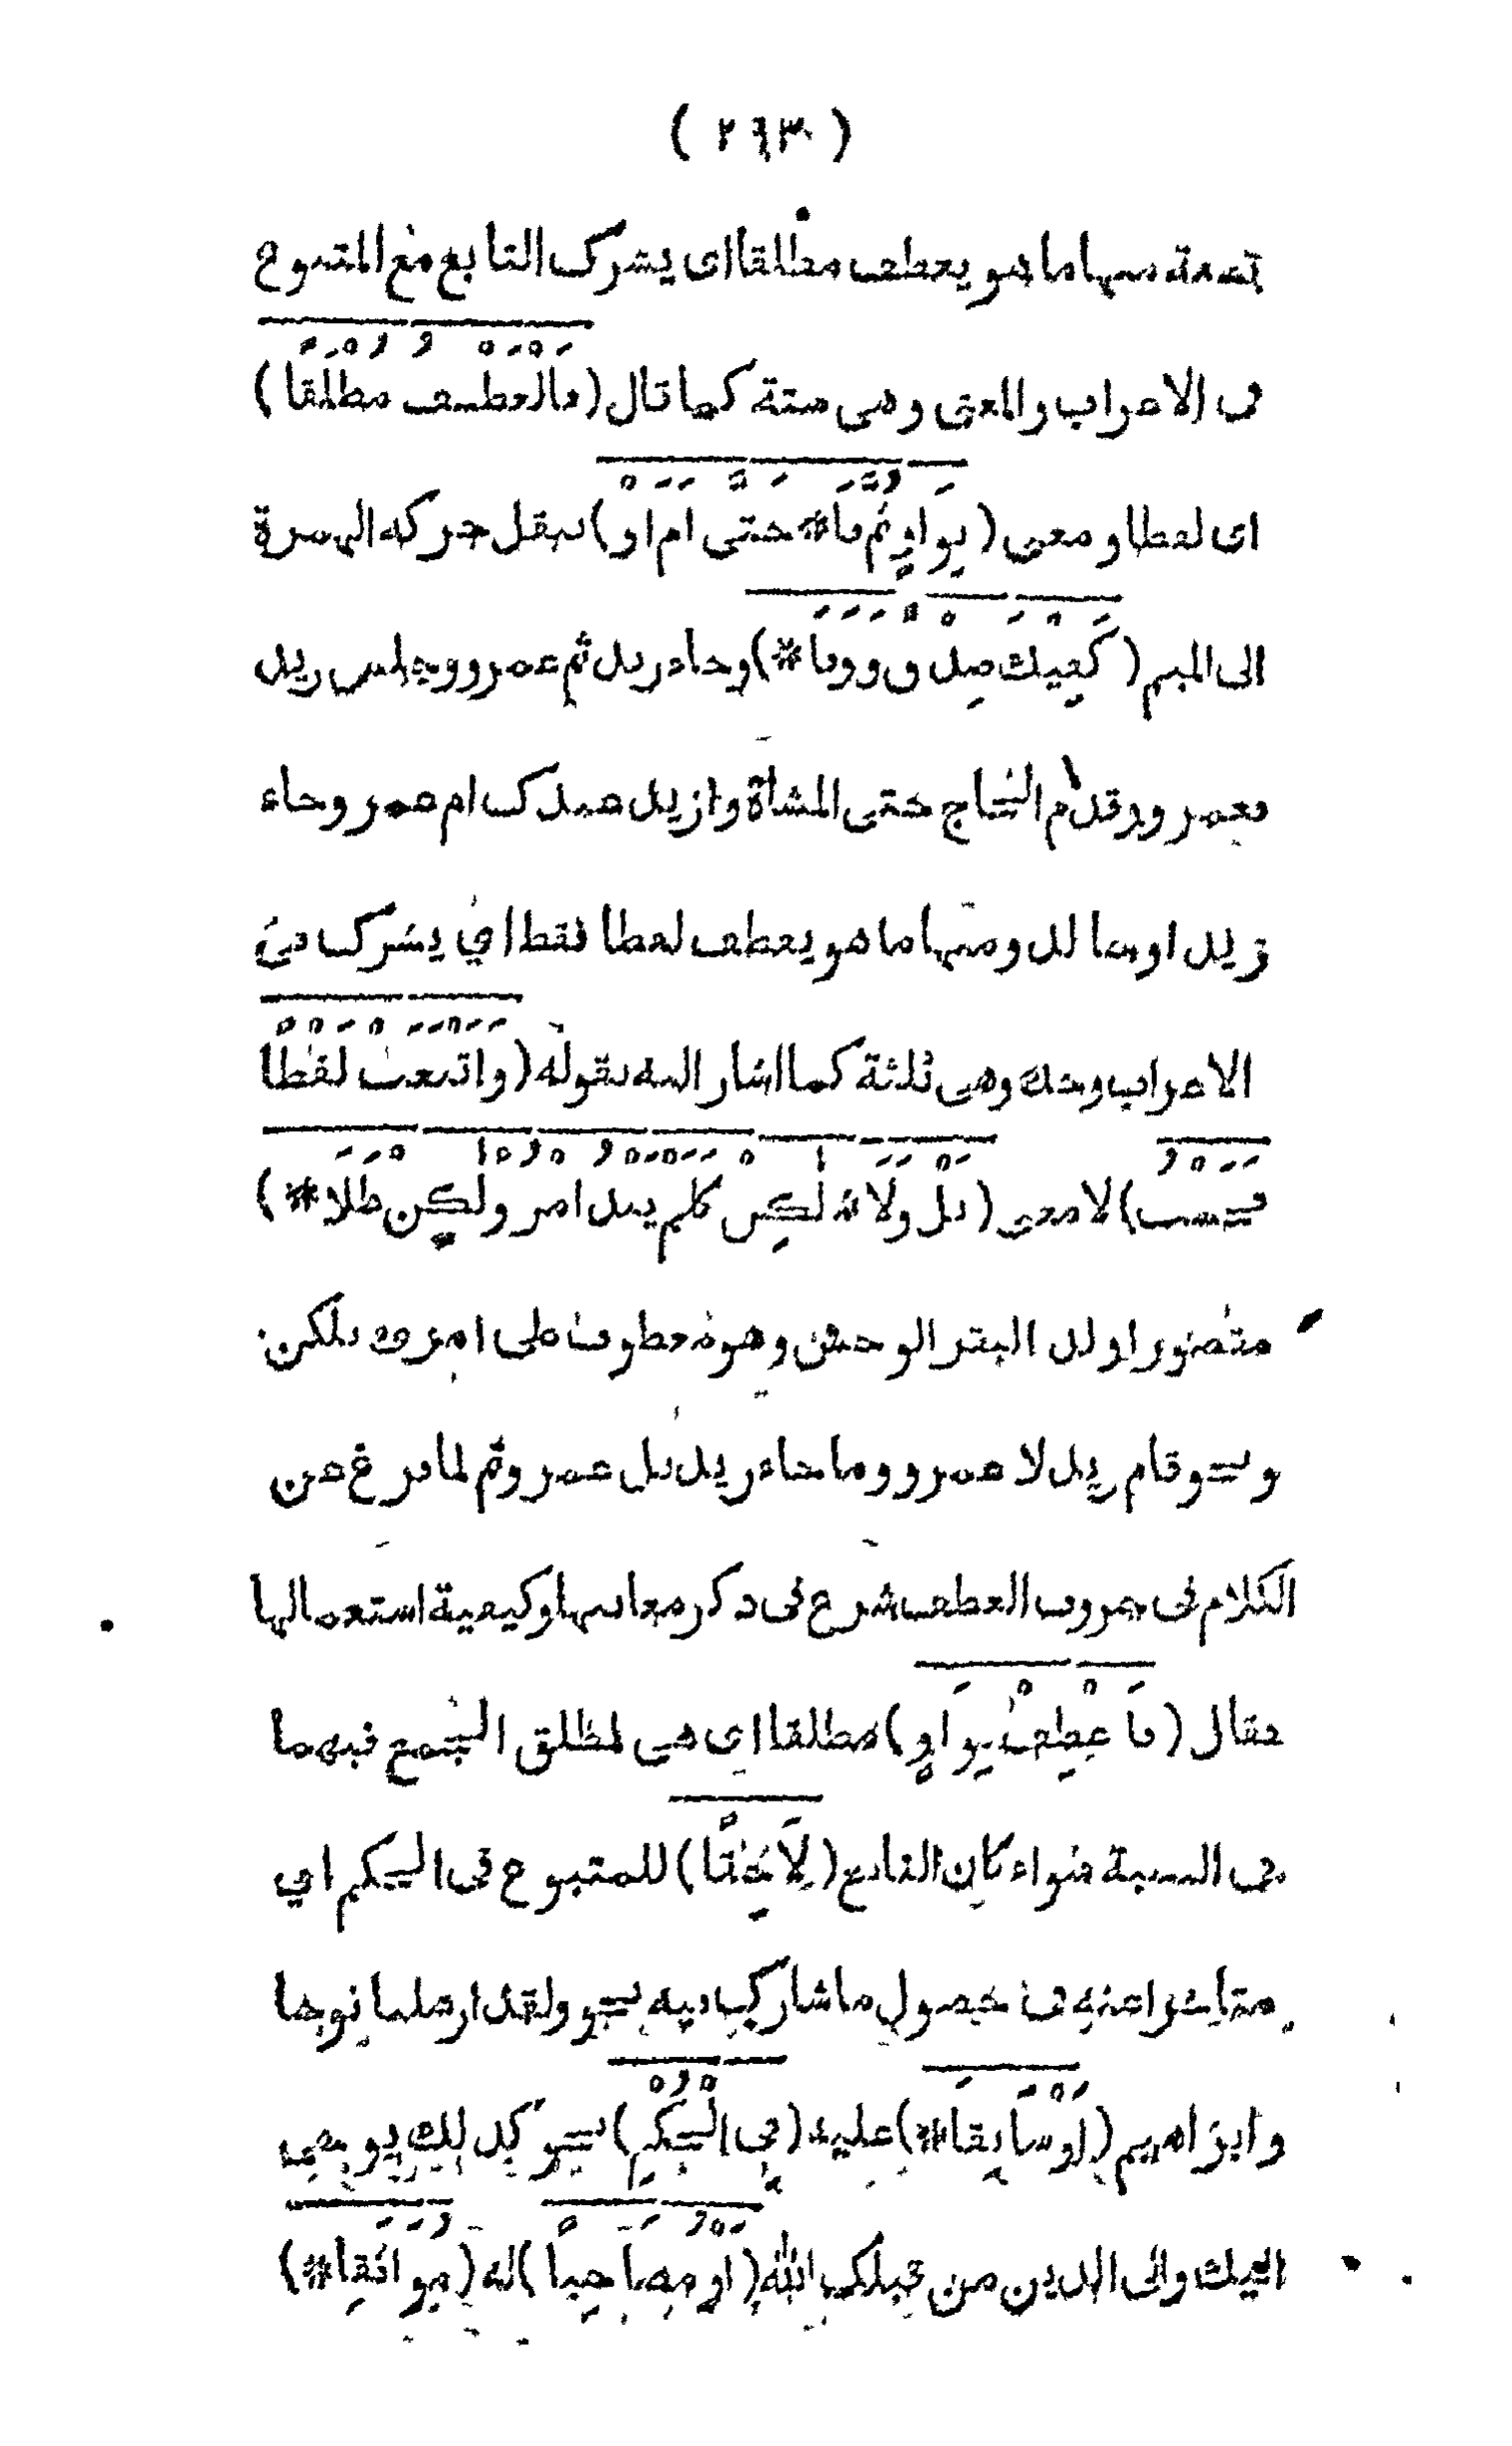 ( ٢٦٣ )
تسعة منها ما هو يعطف مطلقا اى يشرك التابع مع المتبوع
فى الاعراب والمعنى وهى ستة كما قال (فالعَطْفُ مُطْلَقًا)
اى لفظا ومعنى (بِوَاوٍ ثُمَّ فَا * حَتَّى اَمَ اوْ) بنقل حركة الهمزة
الى الميم (كَفِيْكَ صِدْقٌ وَوَفَا *) وجاء زيد ثم عمرو وجلس زيد
فعمرو وقدم الحاج حتى المشاة وازيد عندك ام عمرو وجاء
زيد او خالد ومنها ما هو يعطف لفظا فقط اي يشرك فى
الاعراب وحده وهى ثلثة كما اشار اليه بقوله (وَاَتْبَعَتْ لَفْظًا
فَحَسْبُ) لا معنى (بَلْ وَلَا * لٰكِنْ كَلَمْ يَبْدُ امْرُوٌ لٰكِنْ طَلَا *)
مقصور اولد البقر الوحش وهو معطوف على امرء بلكن
ونحو قام زيد لا عمرو وما جاء زيد بل عمرو ثم لما فرغ عن
الكلام فى حروف العطف شرع فى ذكر معانيها وكيفية استعمالها
فقال (فَاعْطِفْ بِوَاوٍ) مطلقا اى هى لمطلق الجمع فيهما
فى النسبة سواء كان التابع (لَاحِقًا) للمتبوع فى الحكم اي
متاخرا عنه فى حصول ما شارك فيه نحو ولقد ارسلنا نوحا
وابراهيم (اَوْ سَابِقًا *) عليه (فِى الْحُكْمِ) نحو كذلك يوحى
اليك والى الذين من قبلك الله (اَوْ مُصَاحِبًا) له (مُوَافِقَا *)